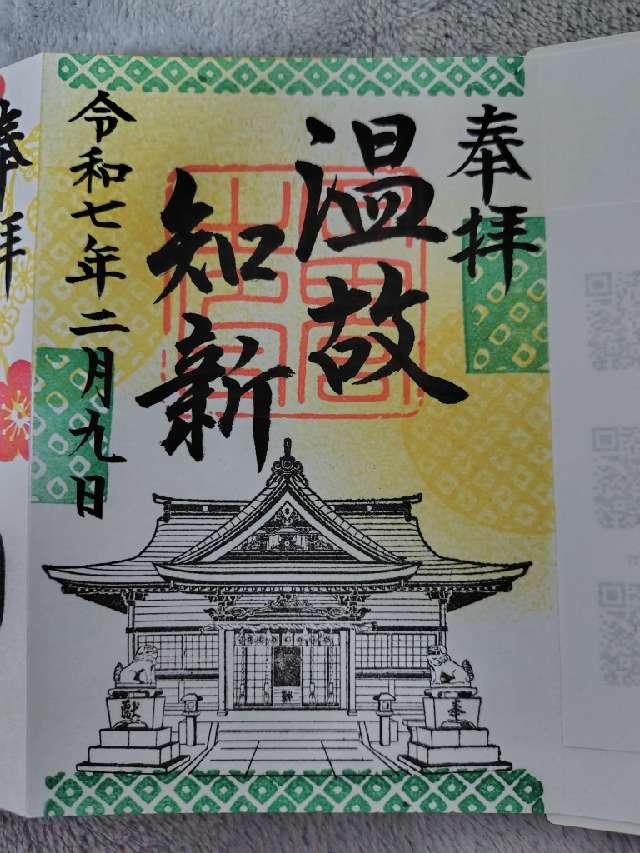 奉拝
温故
知新
令和七年二月九日
奉拝
奉
献